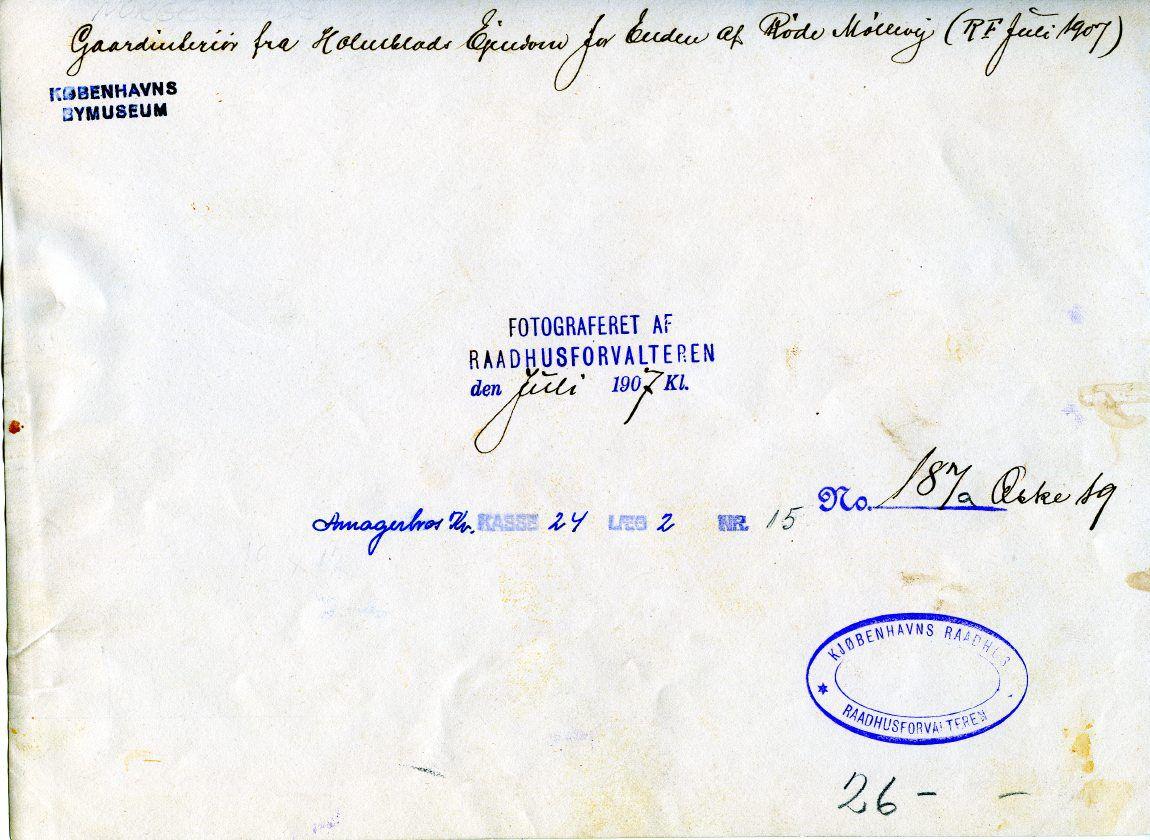 Gaardinteriør fra Holmblads Ejendom for Enden af Røde Møllevej (RF Juli 1907)
KØBENHAVNS
BYMUSEUM
FOTOGRAFERET AF
RAADHUSFORVALTEREN
den Juli 1907 Kl.
No. 187/a Æske 19
Amagerbros Kv. KASSE 24 LÆG 2 NR. 15
KJØBENHAVNS RAADHUS
RAADHUSFORVALTEREN
26 –